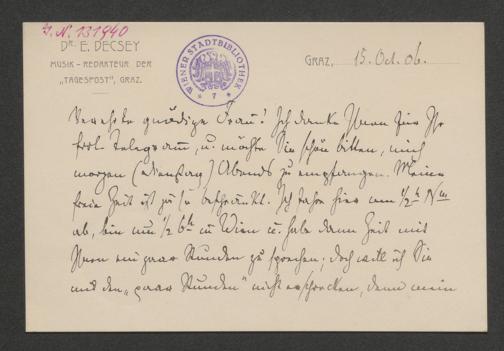 J. N. 131940
Dr. E. DECSEY
MUSIK-REDAKTEUR DER
„TAGESPOST“, GRAZ.
WIENER STADTBIBLIOTHEK
* 7 *
GRAZ, 15. Oct. 06.
Verehrte gnädige Frau! Ich danke Ihnen für Ihr
frdl. Telegramm, u. möchte Sie schön bitten, mich
morgen (Dienstag) Abends zu empfangen. Meine
freie Zeit ist zu beschränkt. Ich fahre hier um ½
ab, bin um ½ 6h in Wien u. habe dann Zeit mit
Ihnen ein paar Stunden zu sprechen; doch will ich Sie
mit den „paar Stunden“ nicht erschrecken, denn mein